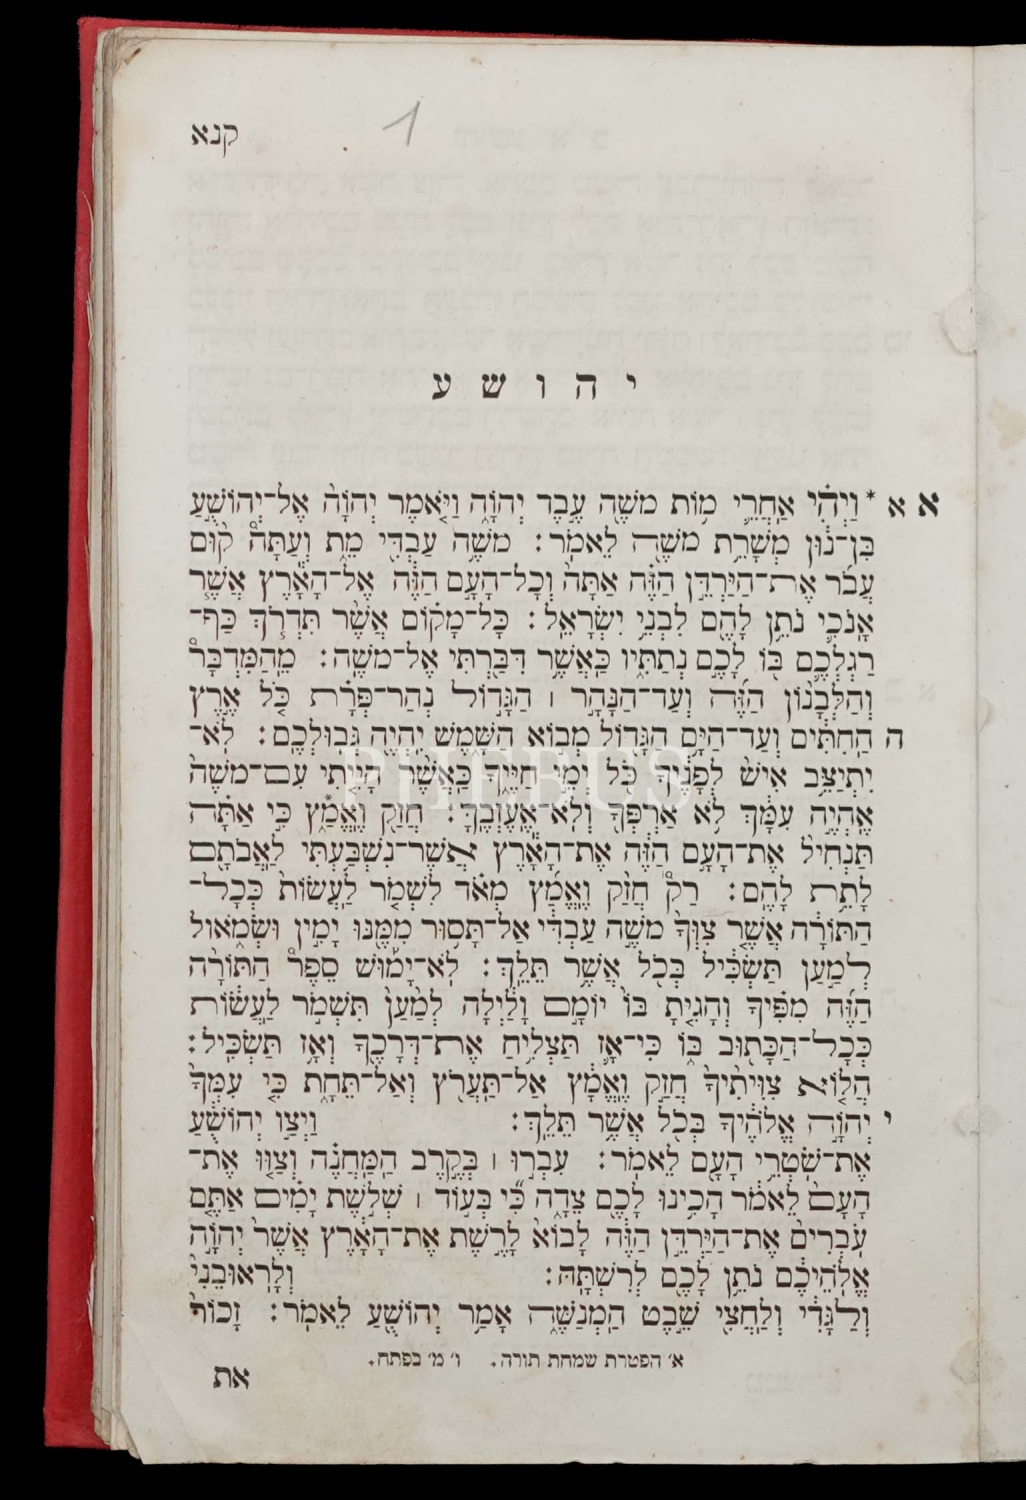 קנא
1
יהושע
א א * וַיְהִ֗י אַחֲרֵ֛י מ֥וֹת מֹשֶׁ֖ה עֶ֣בֶד יְהוָ֑ה וַיֹּ֤אמֶר יְהוָה֙ אֶל־יְהוֹשֻׁ֣עַ
בִּן־נ֔וּן מְשָׁרֵ֥ת מֹשֶׁ֖ה לֵאמֹֽר׃ מֹשֶׁ֥ה עַבְדִּ֖י מֵ֑ת וְעַתָּה֩ ק֨וּם
עֲבֹ֜ר אֶת־הַיַּרְדֵּ֣ן הַזֶּ֗ה אַתָּה֙ וְכָל־הָעָ֣ם הַזֶּ֔ה אֶל־הָאָ֕רֶץ אֲשֶׁ֧ר
אָנֹכִ֛י נֹתֵ֥ן לָהֶ֖ם לִבְנֵ֥י יִשְׂרָאֵֽל׃ כָּל־מָק֗וֹם אֲשֶׁ֨ר תִּדְרֹ֧ךְ כַּֽף־
רַגְלְכֶ֛ם בּ֖וֹ לָכֶ֣ם נְתַתִּ֑יו כַּאֲשֶׁ֥ר דִּבַּ֖רְתִּי אֶל־מֹשֶֽׁה׃ מֵהַמִּדְבָּר֩
וְהַלְּבָנ֨וֹן הַזֶּ֜ה וְֽעַד־הַנָּהָ֧ר ׀ הַגָּד֣וֹל נְהַר־פְּרָ֗ת כֹּ֚ל אֶ֣רֶץ
ה הַֽחִתִּ֔ים וְעַד־הַיָּ֥ם הַגָּד֖וֹל מְב֣וֹא הַשָּׁ֑מֶשׁ יִֽהְיֶ֖ה גְּבוּלְכֶֽם׃ לֹֽא־
יִתְיַצֵּ֥ב אִישׁ֙ לְפָנֶ֔יךָ כֹּ֖ל יְמֵ֣י חַיֶּ֑יךָ כַּֽאֲשֶׁ֨ר הָיִ֤יתִי עִם־מֹשֶׁה֙
אֶהְיֶ֣ה עִמָּ֔ךְ לֹ֥א אַרְפְּךָ֖ וְלֹ֥א־אֶעֶזְבֶֽךָּ׃ חֲזַ֖ק וֶאֱמָ֑ץ כִּ֣י אַתָּ֗ה
תַּנְחִיל֙ אֶת־הָעָ֣ם הַזֶּ֔ה אֶת־הָאָ֕רֶץ אֲשֶׁר־נִשְׁבַּ֥עְתִּי לַאֲבֹתָ֖ם
לָתֵ֥ת לָהֶֽם׃ רַק֩ חֲזַ֨ק וֶֽאֱמַ֜ץ מְאֹ֗ד לִשְׁמֹ֤ר לַעֲשׂוֹת֙ כְּכָל־
הַתּוֹרָ֔ה אֲשֶׁ֤ר צִוְּךָ֙ מֹשֶׁ֣ה עַבְדִּ֔י אַל־תָּס֥וּר מִמֶּ֖נּוּ יָמִ֣ין וּשְׂמֹ֑אול
לְמַ֣עַן תַּשְׂכִּ֔יל בְּכֹ֖ל אֲשֶׁ֥ר תֵּלֵֽךְ׃ לֹֽא־יָמ֡וּשׁ סֵפֶר֩ הַתּוֹרָ֨ה
הַזֶּ֜ה מִפִּ֗יךָ וְהָגִ֤יתָ בּוֹ֙ יוֹמָ֣ם וָלַ֔יְלָה לְמַ֙עַן֙ תִּשְׁמֹ֣ר לַעֲשׂ֔וֹת
כְּכָל־הַכָּת֖וּב בּ֑וֹ כִּי־אָ֛ז תַּצְלִ֥יחַ אֶת־דְּרָכֶ֖ךָ וְאָ֥ז תַּשְׂכִּֽיל׃
הֲל֤וֹא צִוִּיתִ֙יךָ֙ חֲזַ֣ק וֶאֱמָ֔ץ אַֽל־תַּעֲרֹ֖ץ וְאַל־תֵּחָ֑ת כִּ֤י עִמְּךָ֙
י יְהוָ֣ה אֱלֹהֶ֔יךָ בְּכֹ֖ל אֲשֶׁ֥ר תֵּלֵֽךְ׃ וַיְצַ֣ו יְהוֹשֻׁ֔עַ
אֶת־שֹׁטְרֵ֥י הָעָ֖ם לֵאמֹֽר׃ עִבְר֣וּ ׀ בְּקֶ֣רֶב הַֽמַּחֲנֶ֗ה וְצַוּ֤וּ אֶת־
הָעָם֙ לֵאמֹ֔ר הָכִ֥ינוּ לָכֶ֖ם צֵדָ֑ה כִּ֞י בְּע֣וֹד ׀ שְׁלֹ֣שֶׁת יָמִ֗ים אַתֶּם֙
עֹֽבְרִים֙ אֶת־הַיַּרְדֵּ֣ן הַזֶּ֔ה לָבוֹא֙ לָרֶ֣שֶׁת אֶת־הָאָ֔רֶץ אֲשֶׁר֙ יְהוָ֣ה
אֱלֹֽהֵיכֶ֔ם נֹתֵ֥ן לָכֶ֖ם לְרִשְׁתָּֽהּ׃ וְלָרֽאוּבֵנִי֙
וְלַגָּדִ֔י וְלַחֲצִ֖י שֵׁ֣בֶט הַֽמְנַשֶּׁ֑ה אָמַ֥ר יְהוֹשֻׁ֖עַ לֵאמֹֽר׃ זָכוֹר֙
א׳ הפטרת שמחת תורה. ו׳ מ׳ בפתח.
את
PHEBUS